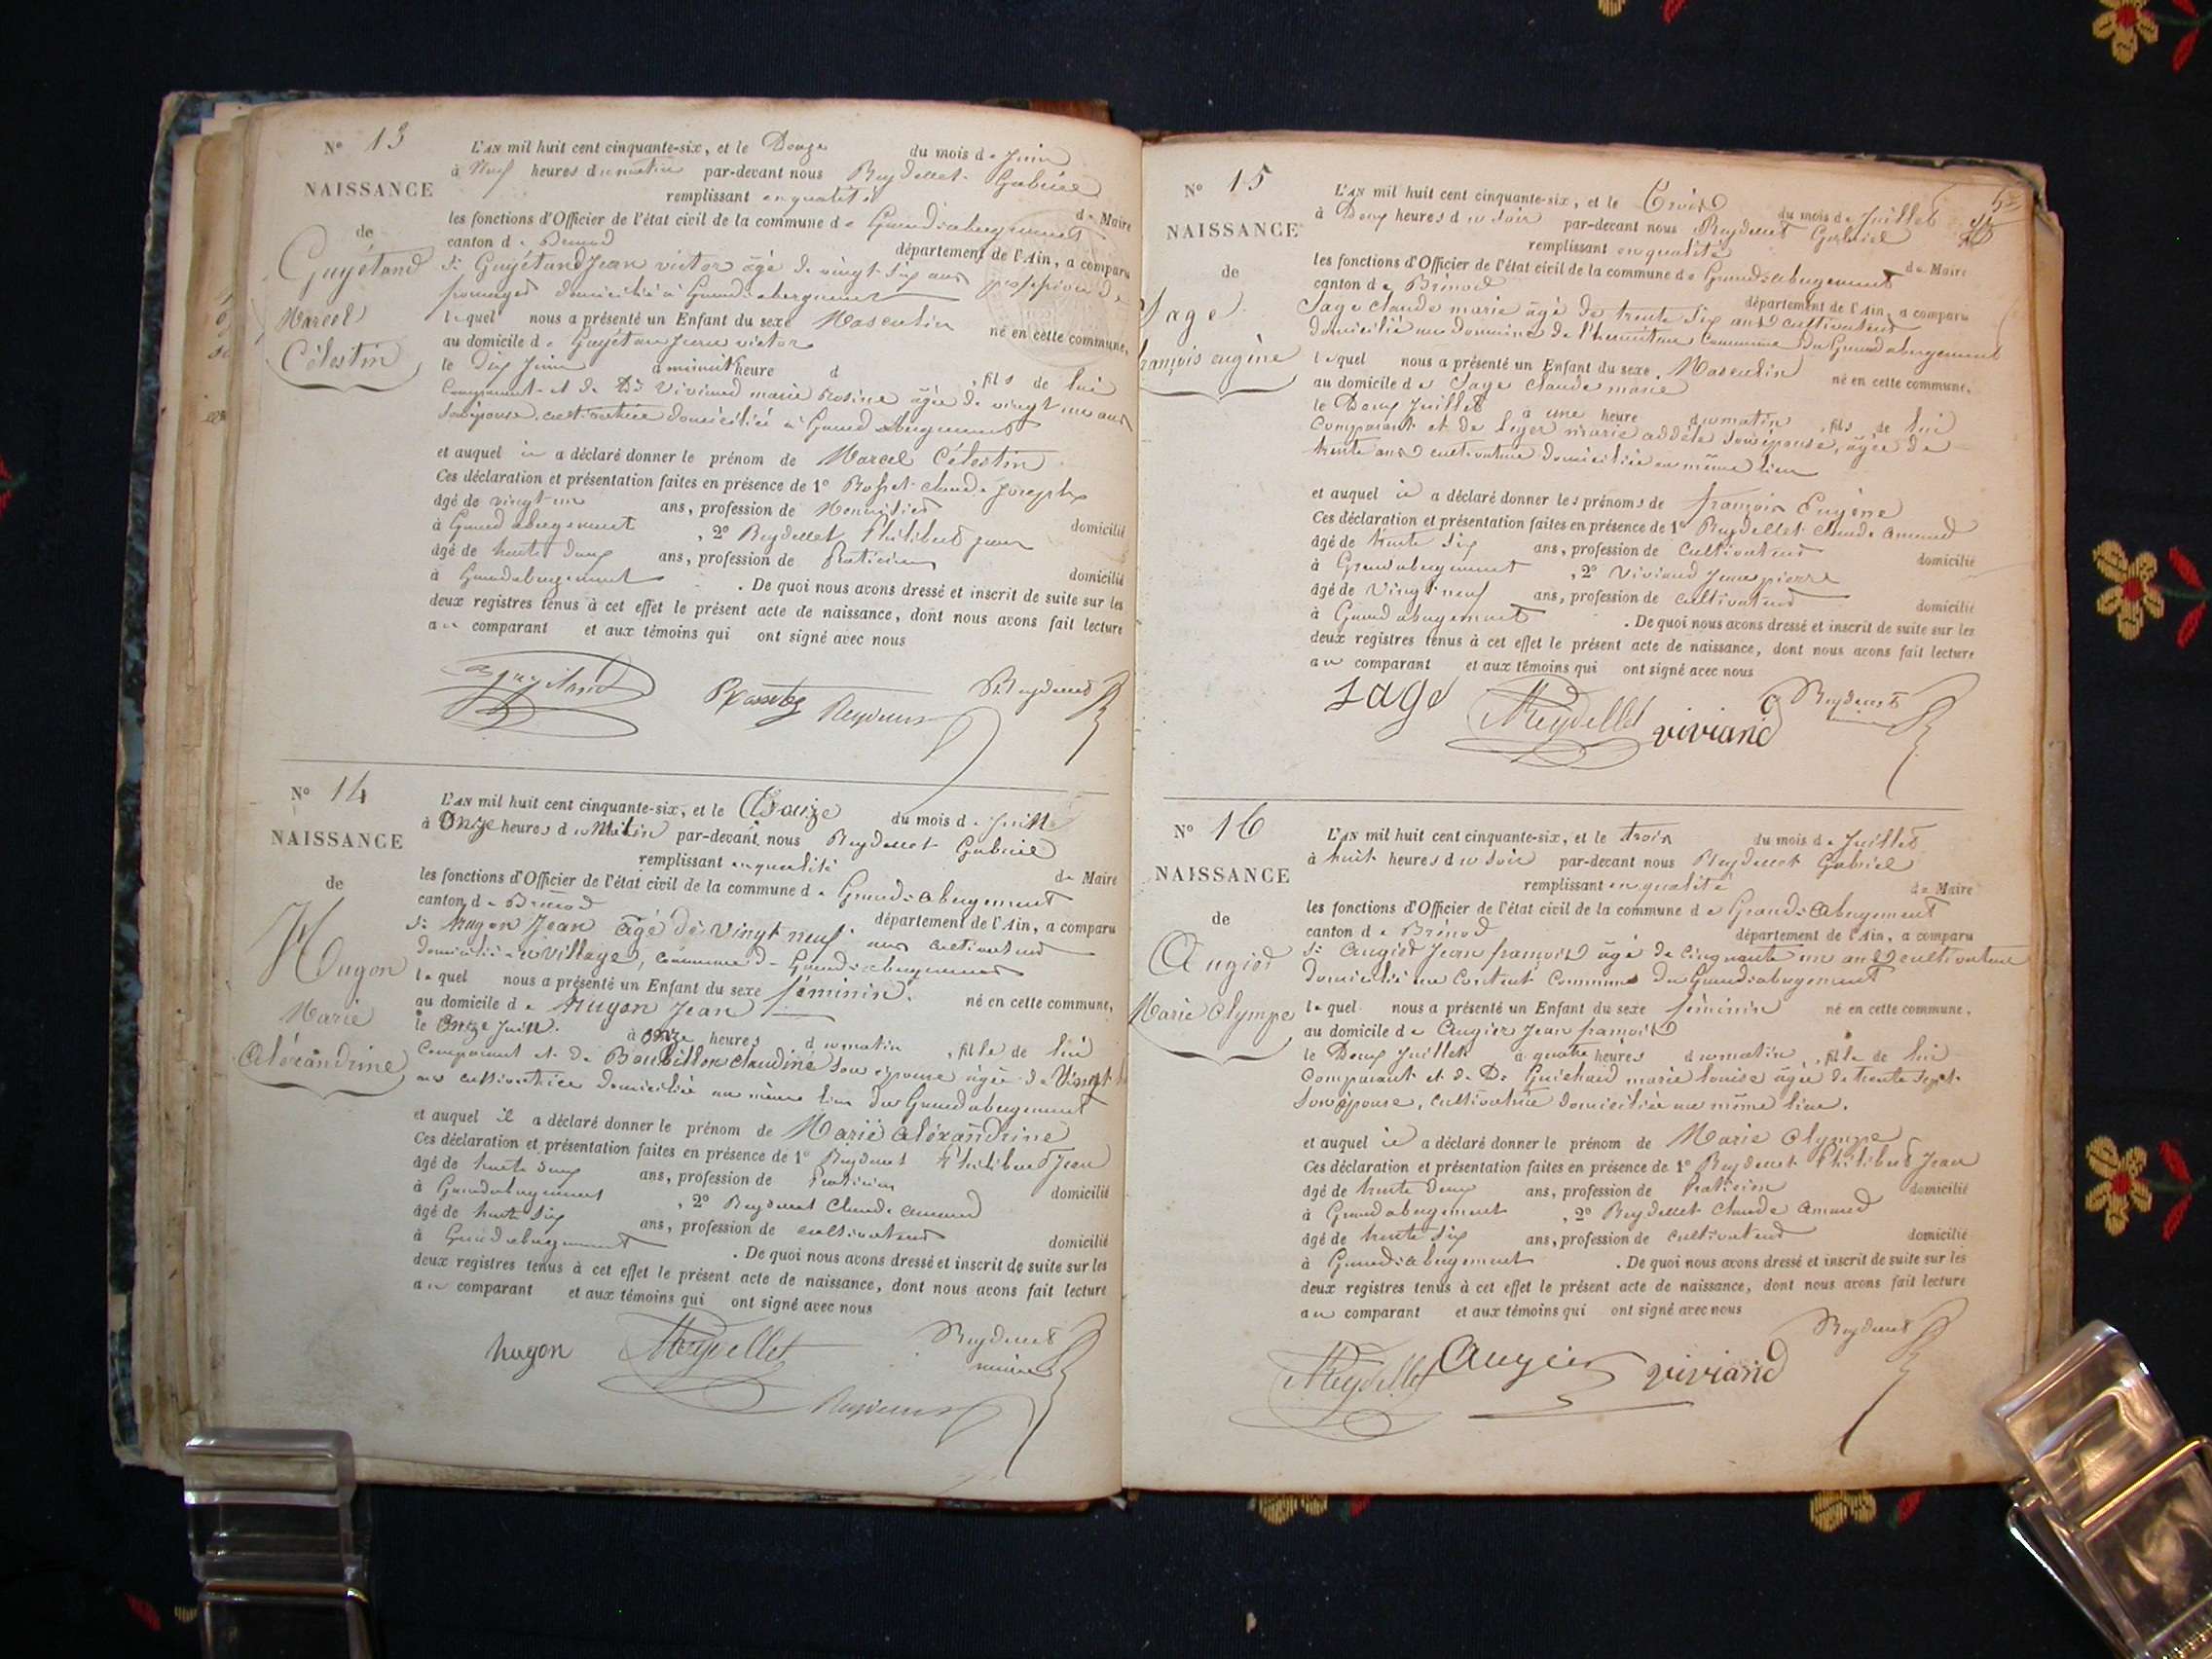 N° 13
NAISSANCE
de
Guyétand
Marcel
Célestin
L'AN mil huit cent cinquante-six, et le Douze du mois de Juin
à Neuf heures du matin par-devant nous Reydellet Gabriel
remplissant en qualité de Maire
les fonctions d'Officier de l'état civil de la commune de Grand-abergement
canton de Brenod département de l'Ain, a comparu
Sr Guyétand Jean victor âgé de vingt-six ans profession de
fromager domicilié à Grand-abergement
lequel nous a présenté un Enfant du sexe Masculin né en cette commune,
au domicile de Guyétan Jean victor
le dix Juin à minuit heure d , fils de lui
Comparant et de De Viviand marie rosine âgée de vingt un ans
son épouse cultivatrice domiciliée à Grand Abergement
et auquel il a déclaré donner le prénom de Marcel Célestin
Ces déclaration et présentation faites en présence de 1° Rosset claude Joseph
âgé de vingt-un ans, profession de Menuisier domicilié
à Grand abergement , 2° Reydellet Philibert jean
âgé de trente deux ans, profession de Praticien domicilié
à Grandabergement . De quoi nous avons dressé et inscrit de suite sur les
deux registres tenus à cet effet le présent acte de naissance, dont nous avons fait lecture
au comparant et aux témoins qui ont signé avec nous
guyétand Rosset Reydellet Reydellet
N° 14
NAISSANCE
de
Hugon
Marie
Aléxandrine
L'AN mil huit cent cinquante-six, et le Douize du mois de Juin
à Onze heures du Matin par-devant nous Reydellet Gabriel
remplissant en qualité de Maire
les fonctions d'Officier de l'état civil de la commune de Grand-abergement
canton de Brenod département de l'Ain, a comparu
Sr hugon Jean âgé de vingt neuf ans cultivateur
domicilié au village, commune de Grand-abergement
lequel nous a présenté un Enfant du sexe féminin. né en cette commune,
au domicile de hugon Jean
le Onze Juin. à onze heures du matin , fille de lui
Comparant et de Boubillon claudine son épouse âgée de Vingt
ans cultivatrice domiciliée au même lieu du Grand abergement
et auquel il a déclaré donner le prénom de Marie aléxandrine
Ces déclaration et présentation faites en présence de 1° Reydellet Philibert Jean
âgé de trente deux ans, profession de Praticien domicilié
à Grandabergement , 2° Reydellet Claude amand
âgé de trente six ans, profession de cultivateur domicilié
à Grandabergement . De quoi nous avons dressé et inscrit de suite sur les
deux registres tenus à cet effet le présent acte de naissance, dont nous avons fait lecture
au comparant et aux témoins qui ont signé avec nous
hugon Reydellet Reydellet
maire
Reydellet
N° 15
NAISSANCE
de
Sage
françois eugène
L'AN mil huit cent cinquante-six, et le Trois du mois de Juillet
à Deux heures du soir par-devant nous Reydellet Gabriel
remplissant en qualité de Maire
les fonctions d'Officier de l'état civil de la commune de Grand-abergement
canton de Brénod département de l'Ain, a comparu
Sage claude marie âgé de trente six ans cultivateur
domicilié au domaine de l'hermitan commune du Grand abergement
lequel nous a présenté un Enfant du sexe Masculin né en cette commune,
au domicile de Sage claude marie
le Deux Juillet à une heure du matin , fils de lui
Comparant et de Leger marie addèle son épouse, âgée de
trente ans cultivatrice domiciliée au même lieu
et auquel il a déclaré donner les prénoms de françois Eugène
Ces déclaration et présentation faites en présence de 1° Reydellet claude amand
âgé de trente six ans, profession de cultivateur domicilié
à Grandabergement , 2° Viviand Jean pierre
âgé de Vingt neuf ans, profession de cultivateur domicilié
à Grand abergement . De quoi nous avons dressé et inscrit de suite sur les
deux registres tenus à cet effet le présent acte de naissance, dont nous avons fait lecture
au comparant et aux témoins qui ont signé avec nous
Sage Reydellet viviand Reydellet
N° 16
NAISSANCE
de
Augier
Marie olympe
L'AN mil huit cent cinquante-six, et le trois du mois de Juillet
à huit heures du soir par-devant nous Reydellet Gabriel
remplissant en qualité de Maire
les fonctions d'Officier de l'état civil de la commune de Grand-abergement
canton de Brénod département de l'Ain, a comparu
Sr Augier Jean françois âgé de cinquante un ans cultivateur
domicilié au commune du Grand-abergement
lequel nous a présenté un Enfant du sexe féminin né en cette commune,
au domicile de Augier Jean françois
le Deux Juillet à quatre heures du matin , fille de lui
Comparant et de De Guichard marie louise âgée de trente sept
son épouse, cultivatrice domiciliée au même lieu.
et auquel il a déclaré donner le prénom de Marie olympe
Ces déclaration et présentation faites en présence de 1° Reydellet Philibert Jean
âgé de trente deux ans, profession de Praticien domicilié
à Grandabergement , 2° Reydellet claude amand
âgé de trente six ans, profession de cultivateur domicilié
à Grand-abergement . De quoi nous avons dressé et inscrit de suite sur les
deux registres tenus à cet effet le présent acte de naissance, dont nous avons fait lecture
au comparant et aux témoins qui ont signé avec nous
Reydellet Augier viviand Reydellet